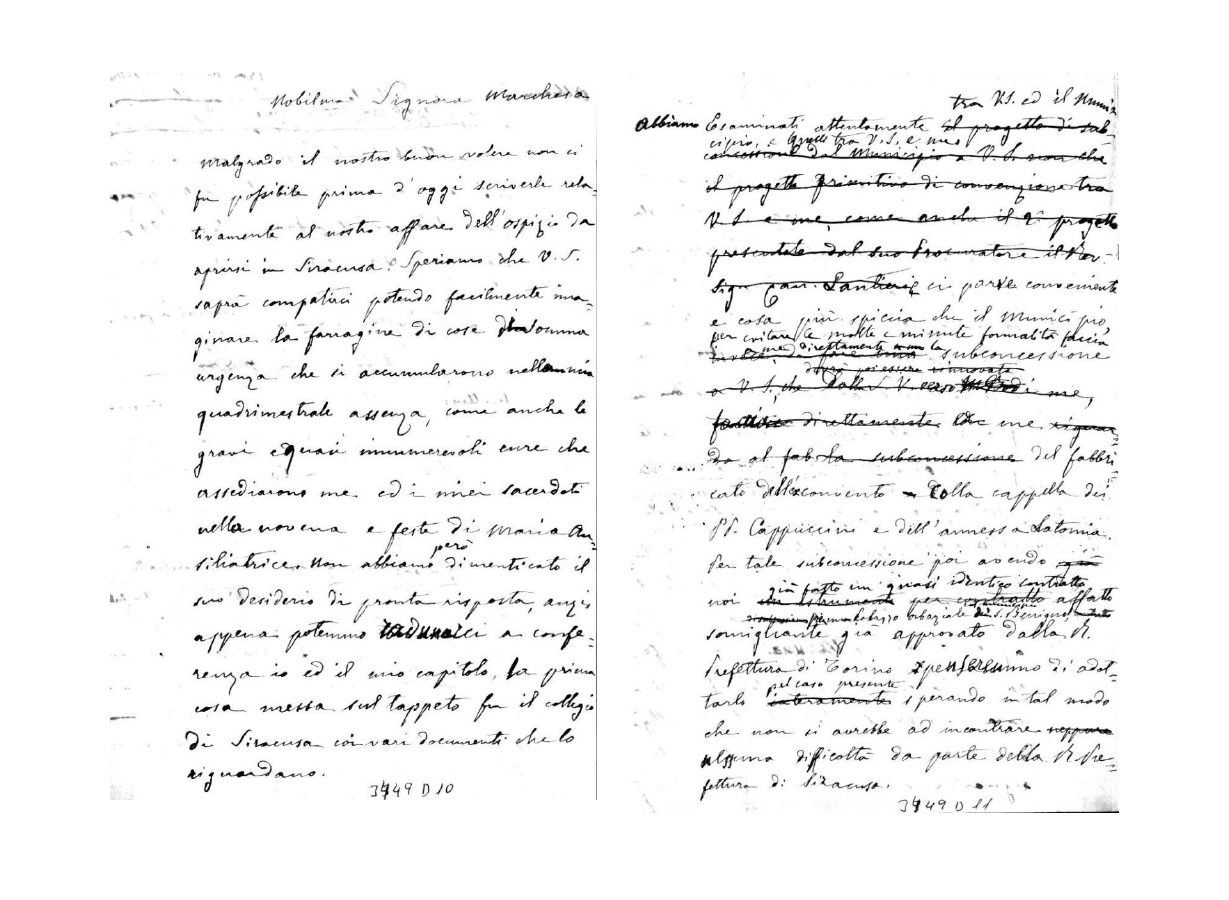 Nobilma Signora Marchesa
Malgrado il nostro buon volere non ci
fu possibile prima d'oggi scriverle rela-
tivamente al nostro affare dell'ospizio da
aprirsi in Siracusa. Speriamo che V. S.
saprà compatirci potendo facilmente ima-
ginare la farragine di cose di somma
urgenza che si accumularono nella mia
quadrimestrale assenza, come anche le
gravi e quasi innumerevoli cure che
assediarono me ed i miei sacerdoti
nella novena e feste di Maria Au-
però
siliatrice. Non abbiamo dimenticato il
suo desiderio di pronta risposta, anzi
appena potemmo radunarci a confe-
renza io ed il mio capitolo, la prima
cosa messa sul tappeto fu il collegio
di Siracusa coi vari documenti che lo
riguardano.
3449 D 10
tra V.S. ed il Muni-
Abbiamo Esaminati attentamente il progetto di sub-
cipio, e quello tra V.S. e me
concessione dal Municipio a V. S. non che
il progetto primitivo di convenzione tra
V. S. e me, come anche il 2° progetto
presentato dal suo Procuratore il Rev.
Sig. Can. Lantieri ci parve conveniente
e cosa più spiccia che il Municipio,
per evitare le molte e minute formalità faccia
invece di fare una subconcessione
me direttamente la
dovrà poi essere rinnovata
a V. S. che dalla S. V. verso di me,
direttamente me
do al la subconcessione del fabbri-
cato dell'exconvento colla cappella dei
PP. Cappuccini e dell'annessa Latomia.
Per tale subconcessione poi avendo già
già fatto un quasi identico contratto
noi un istrumento per contratto affatto
S. Benigno,
somigliante già approvato dalla R.
Prefettura di Torino penseremmo di adot-
pel caso presente
tarlo interamente sperando in tal modo
che non si avrebbe ad incontrare neppure
alcuna difficoltà da parte della R. Pre-
fettura di Siracusa.
3449 D 11